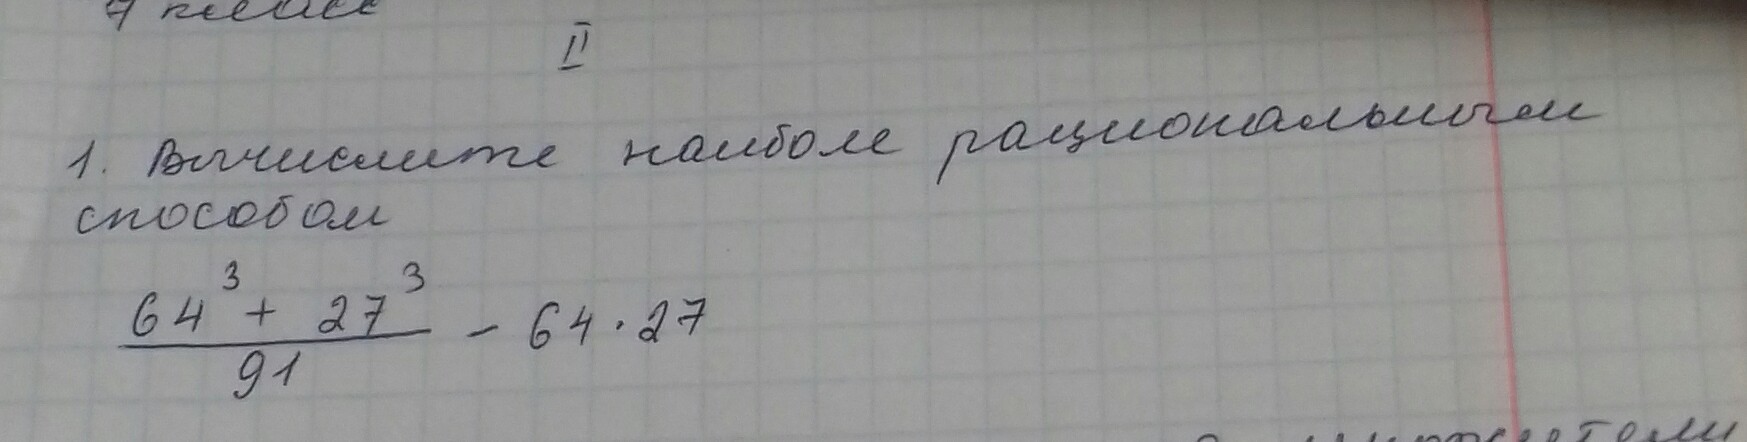 7 класс
II
1. Вычислите наиболе рациональным
способом
64³ + 27³
91
- 64 · 27